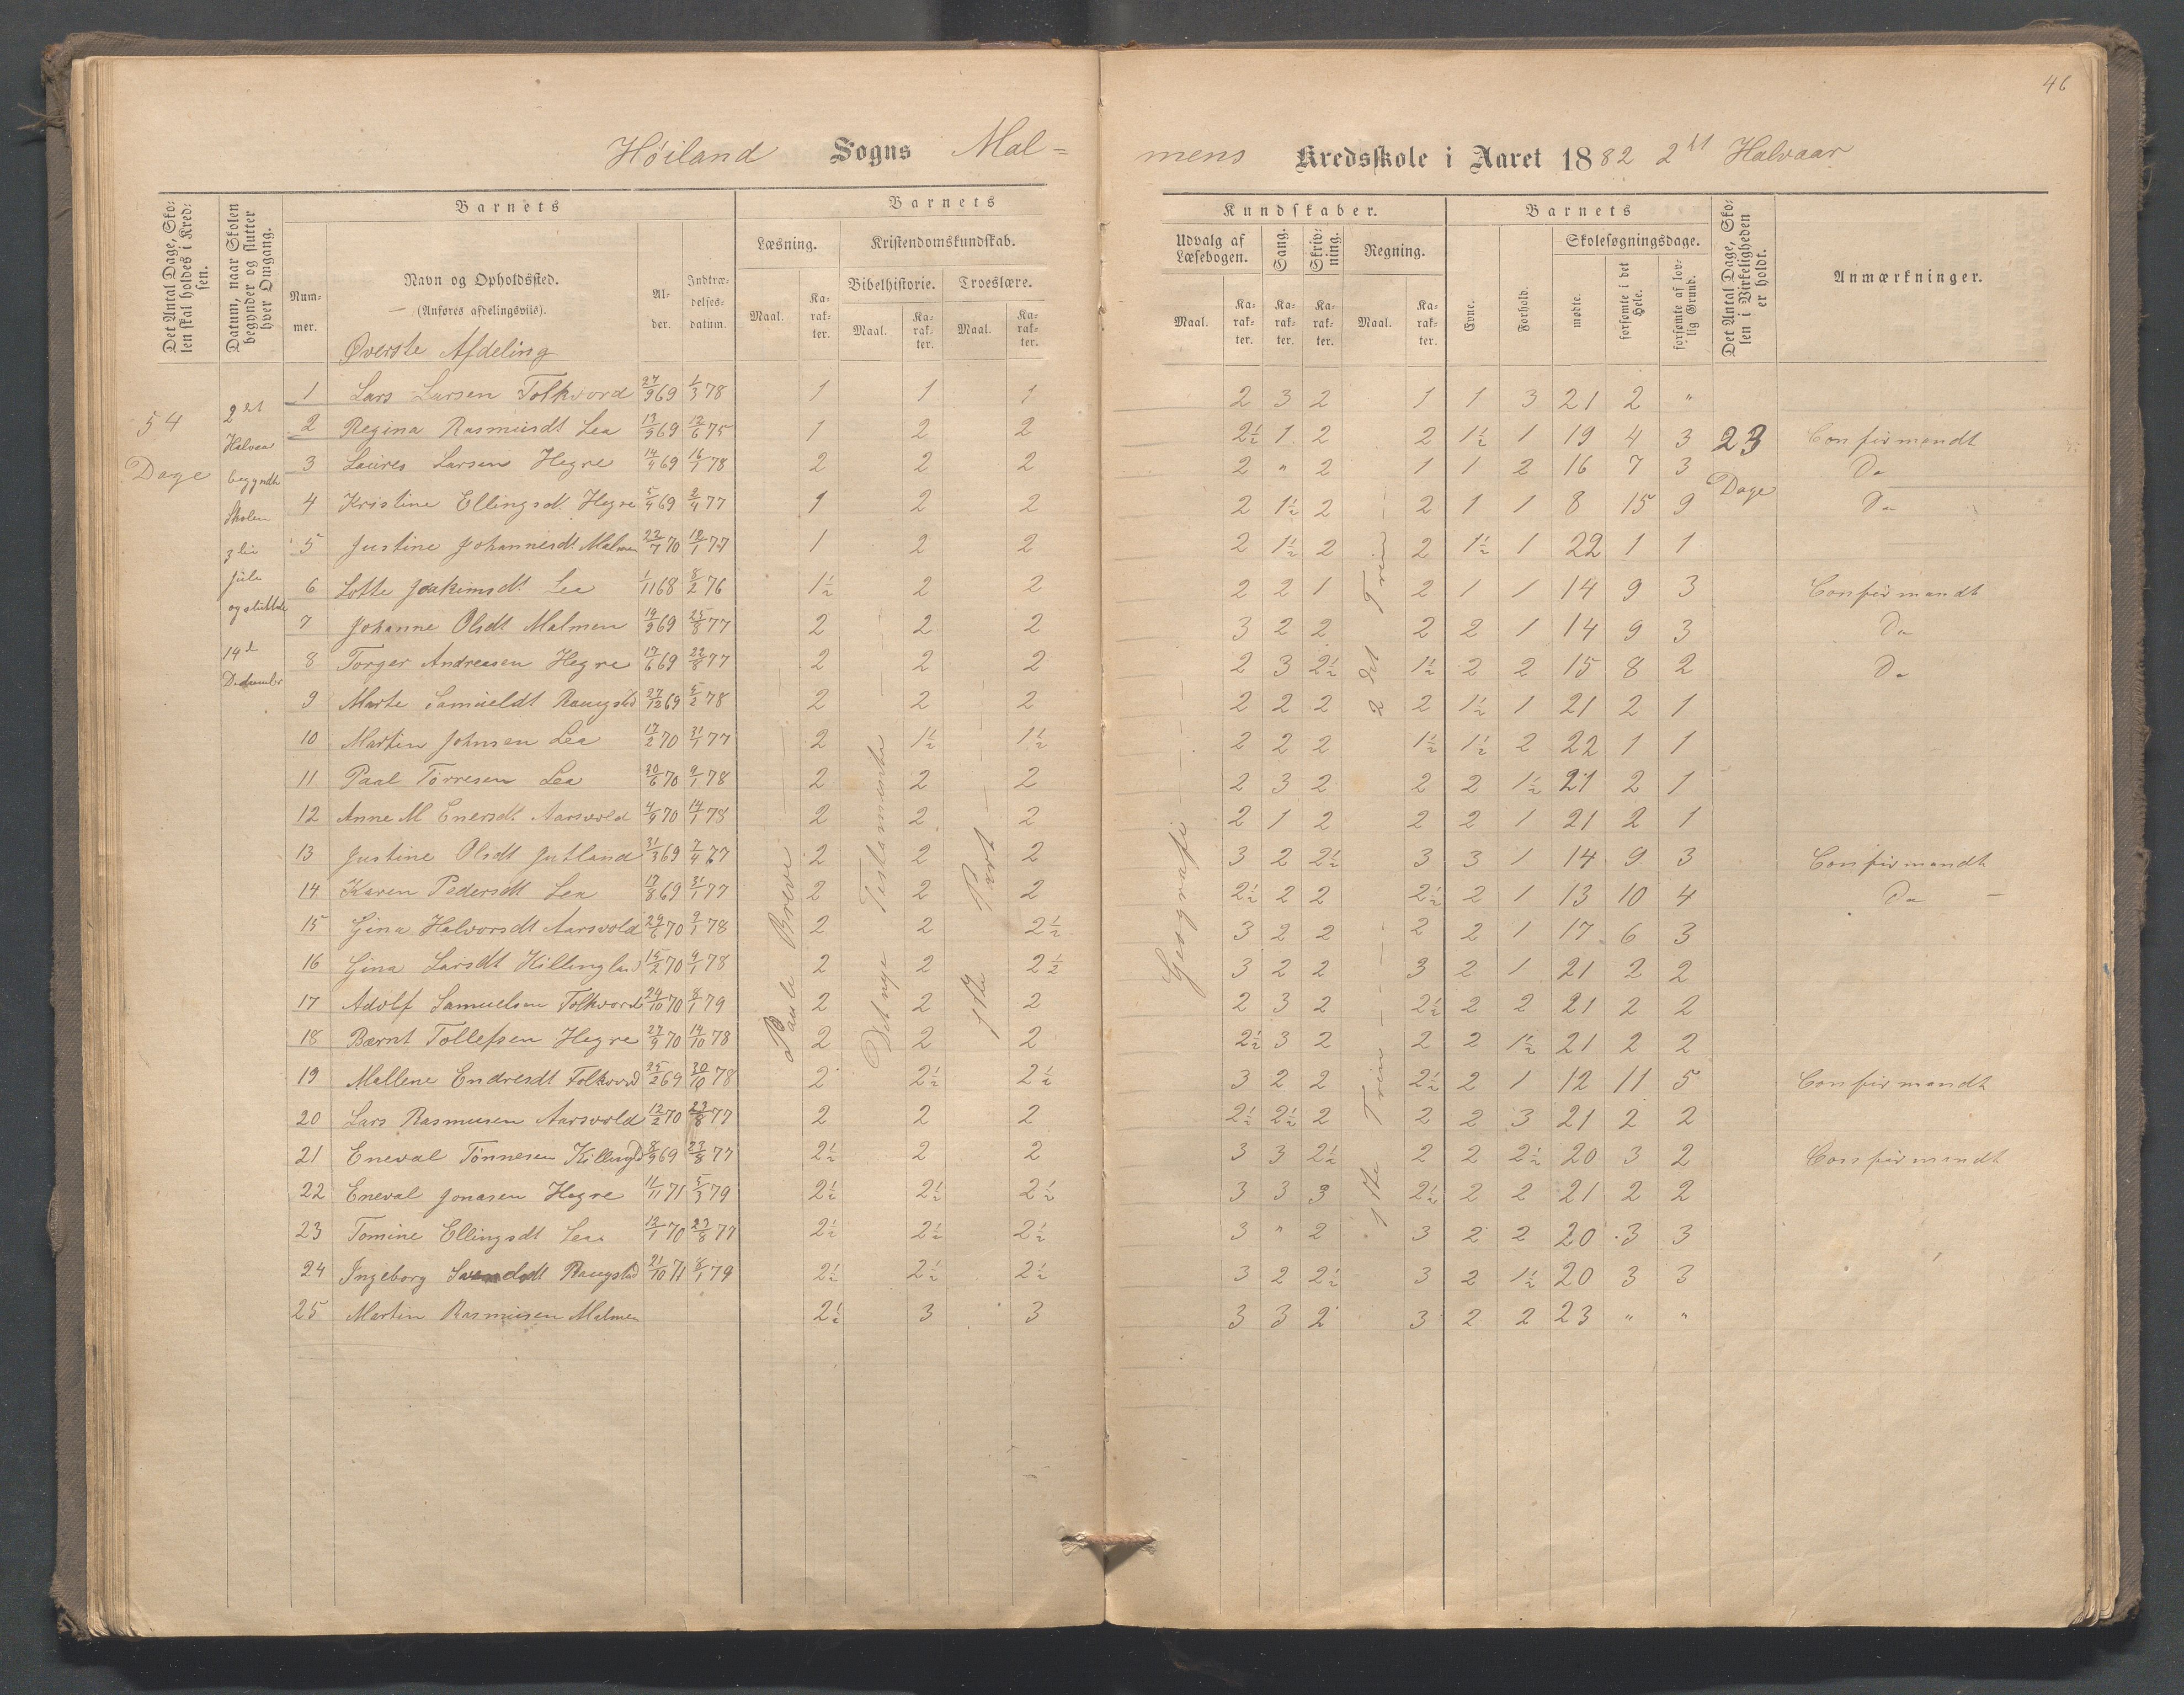 46
Høiland Sogns Mal= mens Kredsskole i Aaret 1882 2det Halvaar
Det Antal Dage, Skolen skal holdes i Kredsen.
Datum, naar Skolen begynder og slutter hver Omgang.
Barnets
Nummer.
Navn og Opholdssted.
(Anføres afdelingsviis).
Øverste Afdeling
Alder.
Indtrædelsesdatum.
Barnets
Læsning.
Maal.
Karakter.
Kristendomskundskab.
Bibelhistorie.
Maal.
Karakter.
Troeslære.
Maal.
Karakter.
Kundskaber.
Udvalg af Læsebogen.
Maal.
Karakter.
Sang.
Karakter.
Skrivning.
Karakter.
Regning.
Maal.
Karakter.
Barnets
Evne.
Forhold.
Skolesøgningsdage.
mødte.
forsømte i det Hele.
forsømte af lovlig Grund.
Det Antal Dage, Skolen i Virkeligheden er holdt.
Anmærkninger.
54 Dage
2det Halvaa begyndte Skolen 3die Juli og sluttede 19de December
Pauli Breve
Det nye Testamente
1ste Part
Geografi
2det Trin
1ste Trin
23 Dage
1 Lars Larsen Folkvord 27/9 69 1/3 78 1 1 1 2 3 2 1 1 3 21 2 "
2 Regina Rasmusdt Lea 13/9 69 12/6 75 1 2 2 2½ 1 2 2 1½ 1 19 4 3 Confirmandt
3 Laures Larsen Hegre 14/9 69 16/1 78 2 2 2 2 " 2 1 1 2 16 7 3 Do
4 Kristine Ellingsdt Hegre 5/4 69 2/4 77 1 2 2 2 1½ 2 2 1 1 8 15 9 Do
5 Justine Johannesdt Malmen 22/7 70 12/1 77 1 2 2 2 1½ 2 2 1½ 1 22 1 1
6 Lotte Joakimsdt Lea 1/11 68 8/2 76 1½ 2 2 2 2 1 2 1 1 14 9 3 Confirmandt
7 Johanne Olsdt Malmen 19/9 69 25/8 77 2 2 2 3 2 2 2 2 1 14 9 3 Do
8 Torger Andreasen Hegre 17/6 69 22/8 77 2 2 2 2 3 2½ 1½ 2 2 15 8 2 Do
9 Marte Samueldt Raugstd 27/12 69 5/2 78 2 2 2 2 2 2 2 1½ 1 21 2 1
10 Martin Johnsen Lea 17/2 70 31/1 77 2 1½ 1½ 2 2 2 1½ 1½ 2 22 1 1
11 Paal Tørresen Lea 30/6 70 9/1 78 2 2 2 2 3 2 2 2 1½ 21 2 1
12 Anne M Enersdt Aarsvold 4/9 70 14/1 78 2 2 2 2 1 2 2 2 1 21 2 1
13 Justine Olsdt Jutland 31/3 69 7/4 77 2 2 2 3 2 2½ 3 3 1 14 9 3 Confirmandt
14 Karen Pedersdt Lea 17/8 69 31/1 77 2 2 2 2½ 2 2 2½ 2 1 13 10 4 Do
15 Gina Halvorsdt Aarsvold 29/6 70 9/1 78 2 2 2½ 3 2 2 2 2 1 17 6 3
16 Gina Larsdt Killingland 15/2 70 9/1 78 2 2 2½ 3 2 2 3 2 1 21 2 2
17 Adolf Samuelsen Folkvord 24/10 70 8/1 79 2 2 2 2 3 2 2½ 2 2 21 2 2
18 Bærnt Tollefsen Hegre 27/9 70 14/10 78 2 2 2 2½ 3 2 2 2 1½ 21 2 2
19 Mallene Endresdt Folkvord 25/2 69 30/10 78 2 2½ 2½ 3 2 2 2½ 2 1 12 11 5 Confirmandt
20 Lars Rasmusen Aarsvold 12/2 70 23/8 77 2 2 2 2½ 2½ 2 2 2 3 21 2 2
21 Eneval Tønnesen Killingld 8/9 69 23/8 77 2½ 2 2 3 3 2½ 2 2 2½ 20 3 2 Confirmandt
22 Eneval Jonasen Hegre 11/11 71 5/3 79 2½ 2½ 2½ 3 3 3 2½ 2 2 21 2 2
23 Tomine Ellingsdt Lea 12/1 70 23/8 77 2½ 2½ 2½ 3 " 2 3 2 2 20 3 3
24 Ingeborg Raugstad 21/10 71 8/1 79 2½ 2½ 2½ 3 2 2½ 3 2 1½ 20 3 3
25 Martin Rasmusen Malmen 2½ 3 3 3 3 2 3 2 2 23 " "